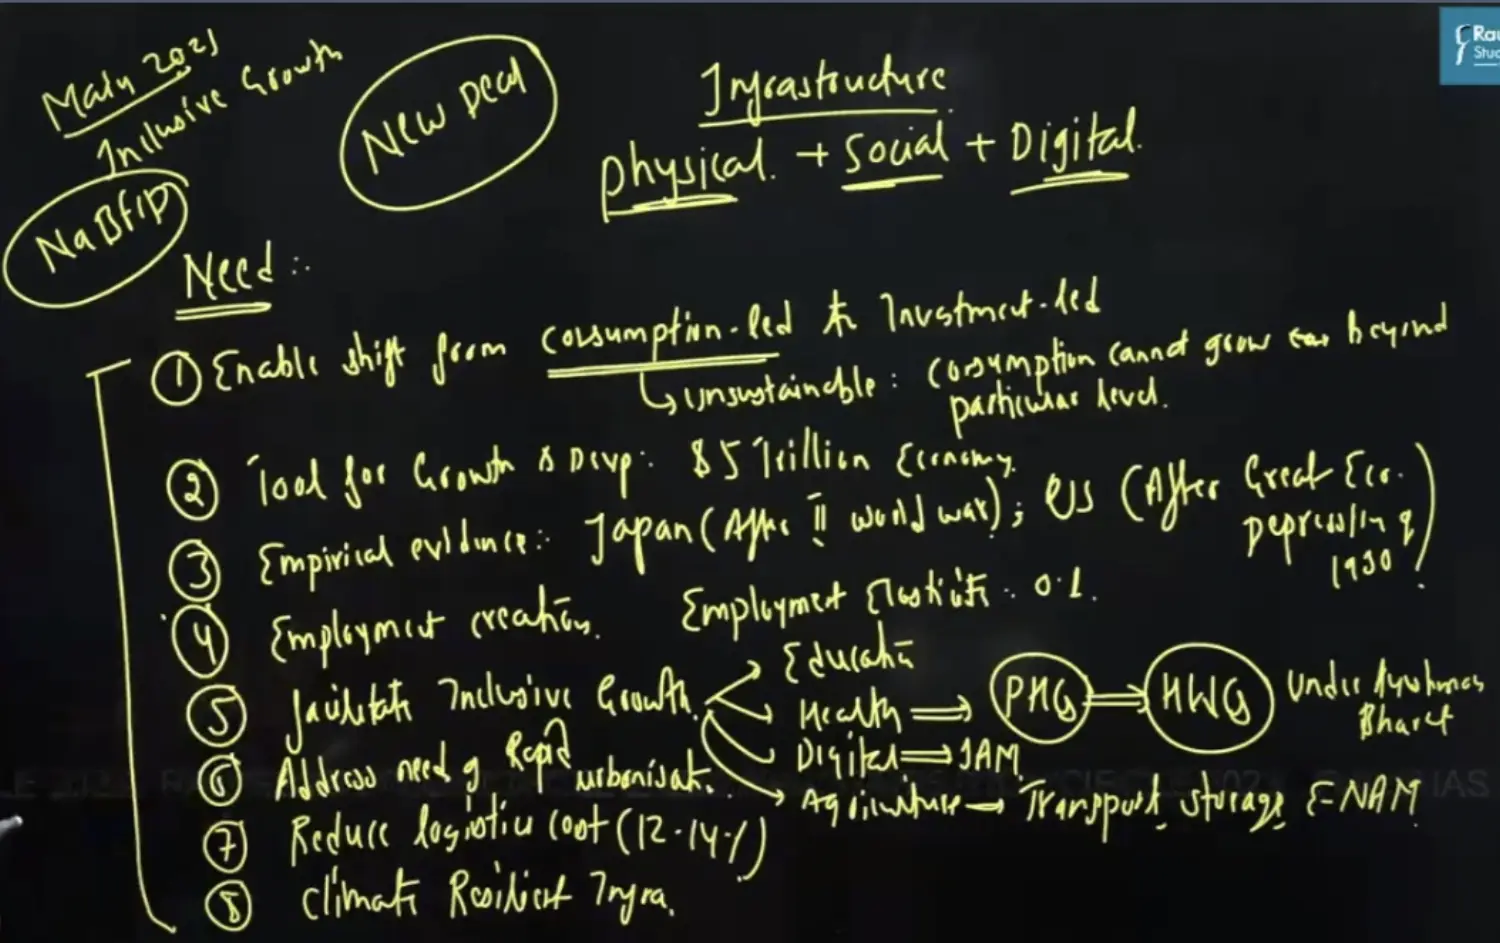 Main 2021
Inclusive Growth
New Deal
NaBFID
Infrastructure
Physical + Social + Digital.
Rau
Stud
Need :-
① Enable shift from consumption-led to Investment-led
↳ Unsustainable : Consumption cannot grow beyond
particular level.
② Tool for Growth & Devp: $5 Trillion Economy.
③ Empirical evidence:- Japan (After II world war) ; US (After Great Eco.
Depression of
1930)
④ Employment creation. Employment Elasticity :- 0.1.
⑤ facilitate Inclusive Growth.
→ Education
→ Health ⇒ PHC ⇒ HWC Under Ayushman
Bharat
→ Digital ⇒ JAM
→ Agriculture → Transport, storage, E-NAM
⑥ Address need of Rapid urbanisat.
⑦ Reduce logistics cost (12-14%)
⑧ Climate Resilient Infra.